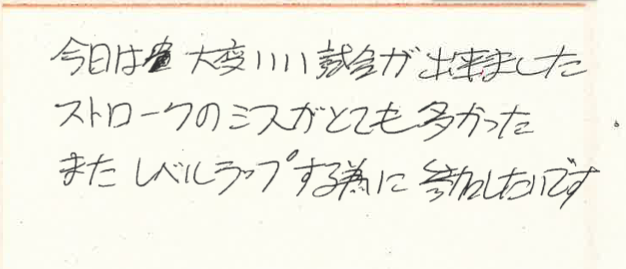 今日は大変いい試合が出来ました
ストロークのミスがとても多かった
またレベルラップする為に参加したいです